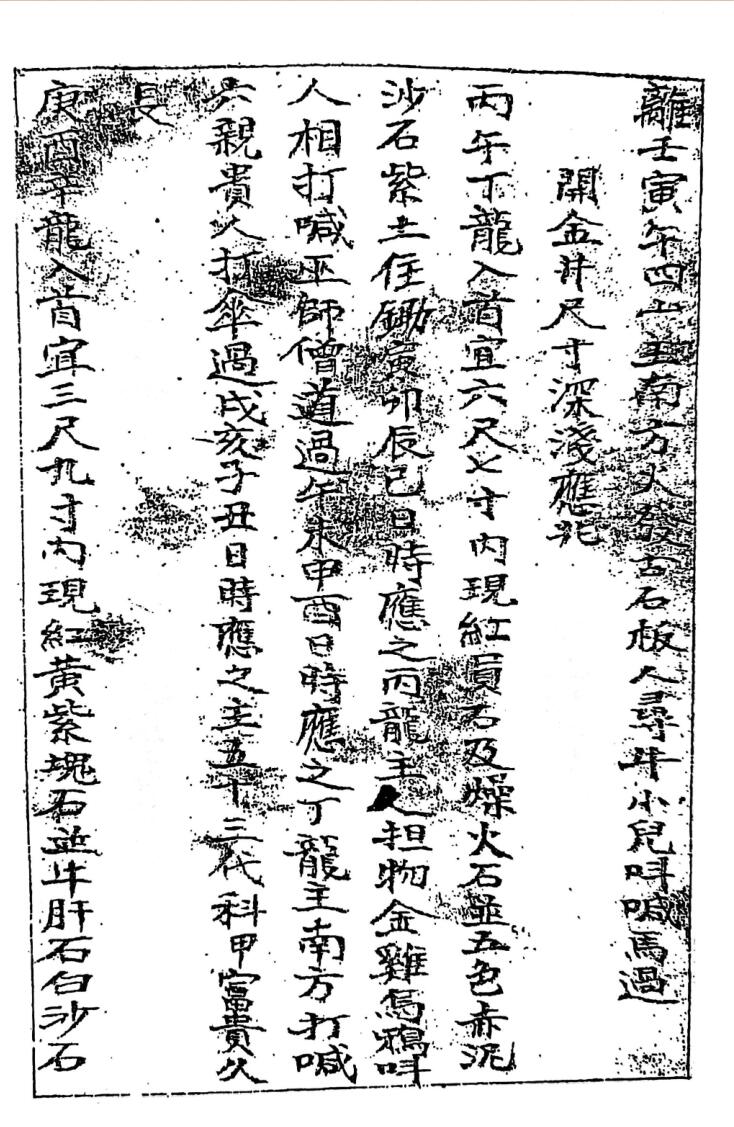 離壬寅午四山主南方火發古石板人尋牛小兒呌喊馬過
開金井尺寸深淺應
丙午丁龍入首宜六尺七寸内現紅員石及燥火石並五色赤泥
沙石紫土住鋤寅卯辰巳日時應之丙龍主人担物金雞烏鴉呌
人相打喊巫師僧道過午未申酉日時應之丁龍主南方打喊
六親貴人打傘過戌亥子丑日時應之主五十三代科甲富貴久
長
庚酉辛龍入首宜三尺九寸内現紅黃紫塊石並牛肝石白沙石